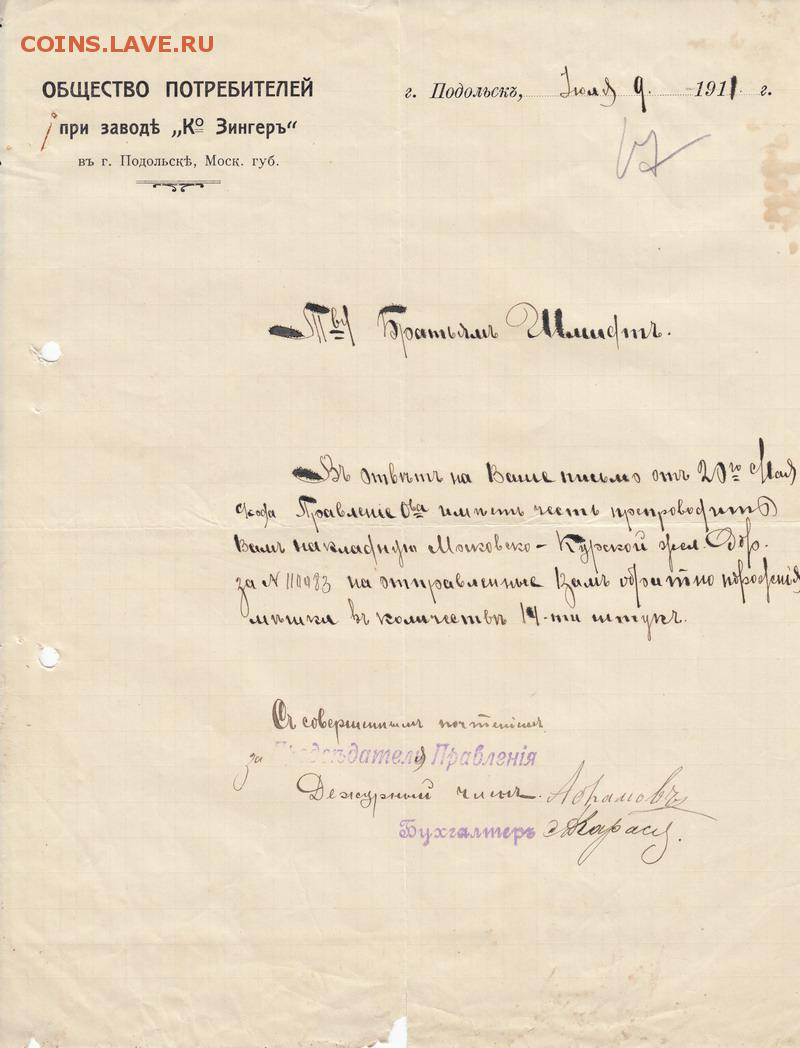 COINS.LAVE.RU
ОБЩЕСТВО ПОТРЕБИТЕЛЕЙ
при заводѣ „Кº Зингеръ“
въ г. Подольскѣ, Моск. губ.
г. Подольскъ, Іюля 9 1911 г.
Тву Братьямъ
Въ отвѣтъ на Ваше письмо отъ 20го Мая
Правленіе Ова имѣетъ честь препроводить
Вамъ накладную Московско-Курской жел. дор.
за № 110983 на отправленные Вамъ обратно порожнія
мѣшка въ количествѣ 14-ти штукъ.
Съ совершеннымъ почтеніемъ
за Предсѣдателя Правленія
Дежурный членъ. Абрамовъ
Бухгалтеръ